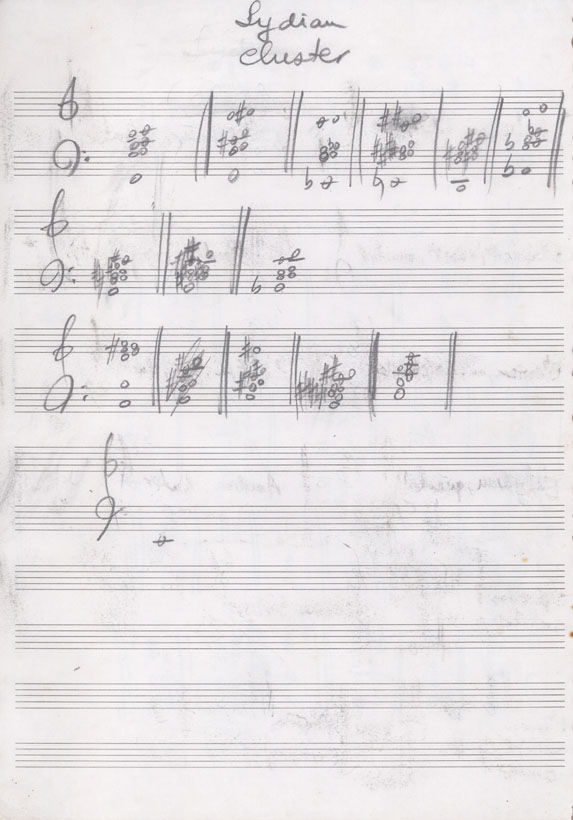 Lydian
cluster